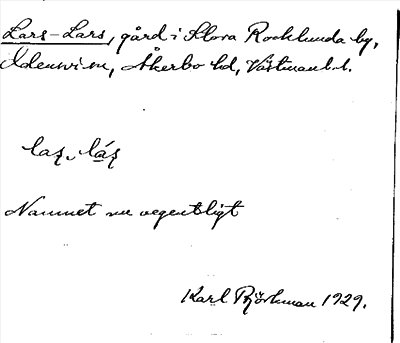 Lars-Lars, gård i Stora Rocklunda by,
Odensvi sn, Åkerbo hd, Västmanl. l.
laʂ, láʂ
Namnet nu oegentligt
Karl Björkman 1929.